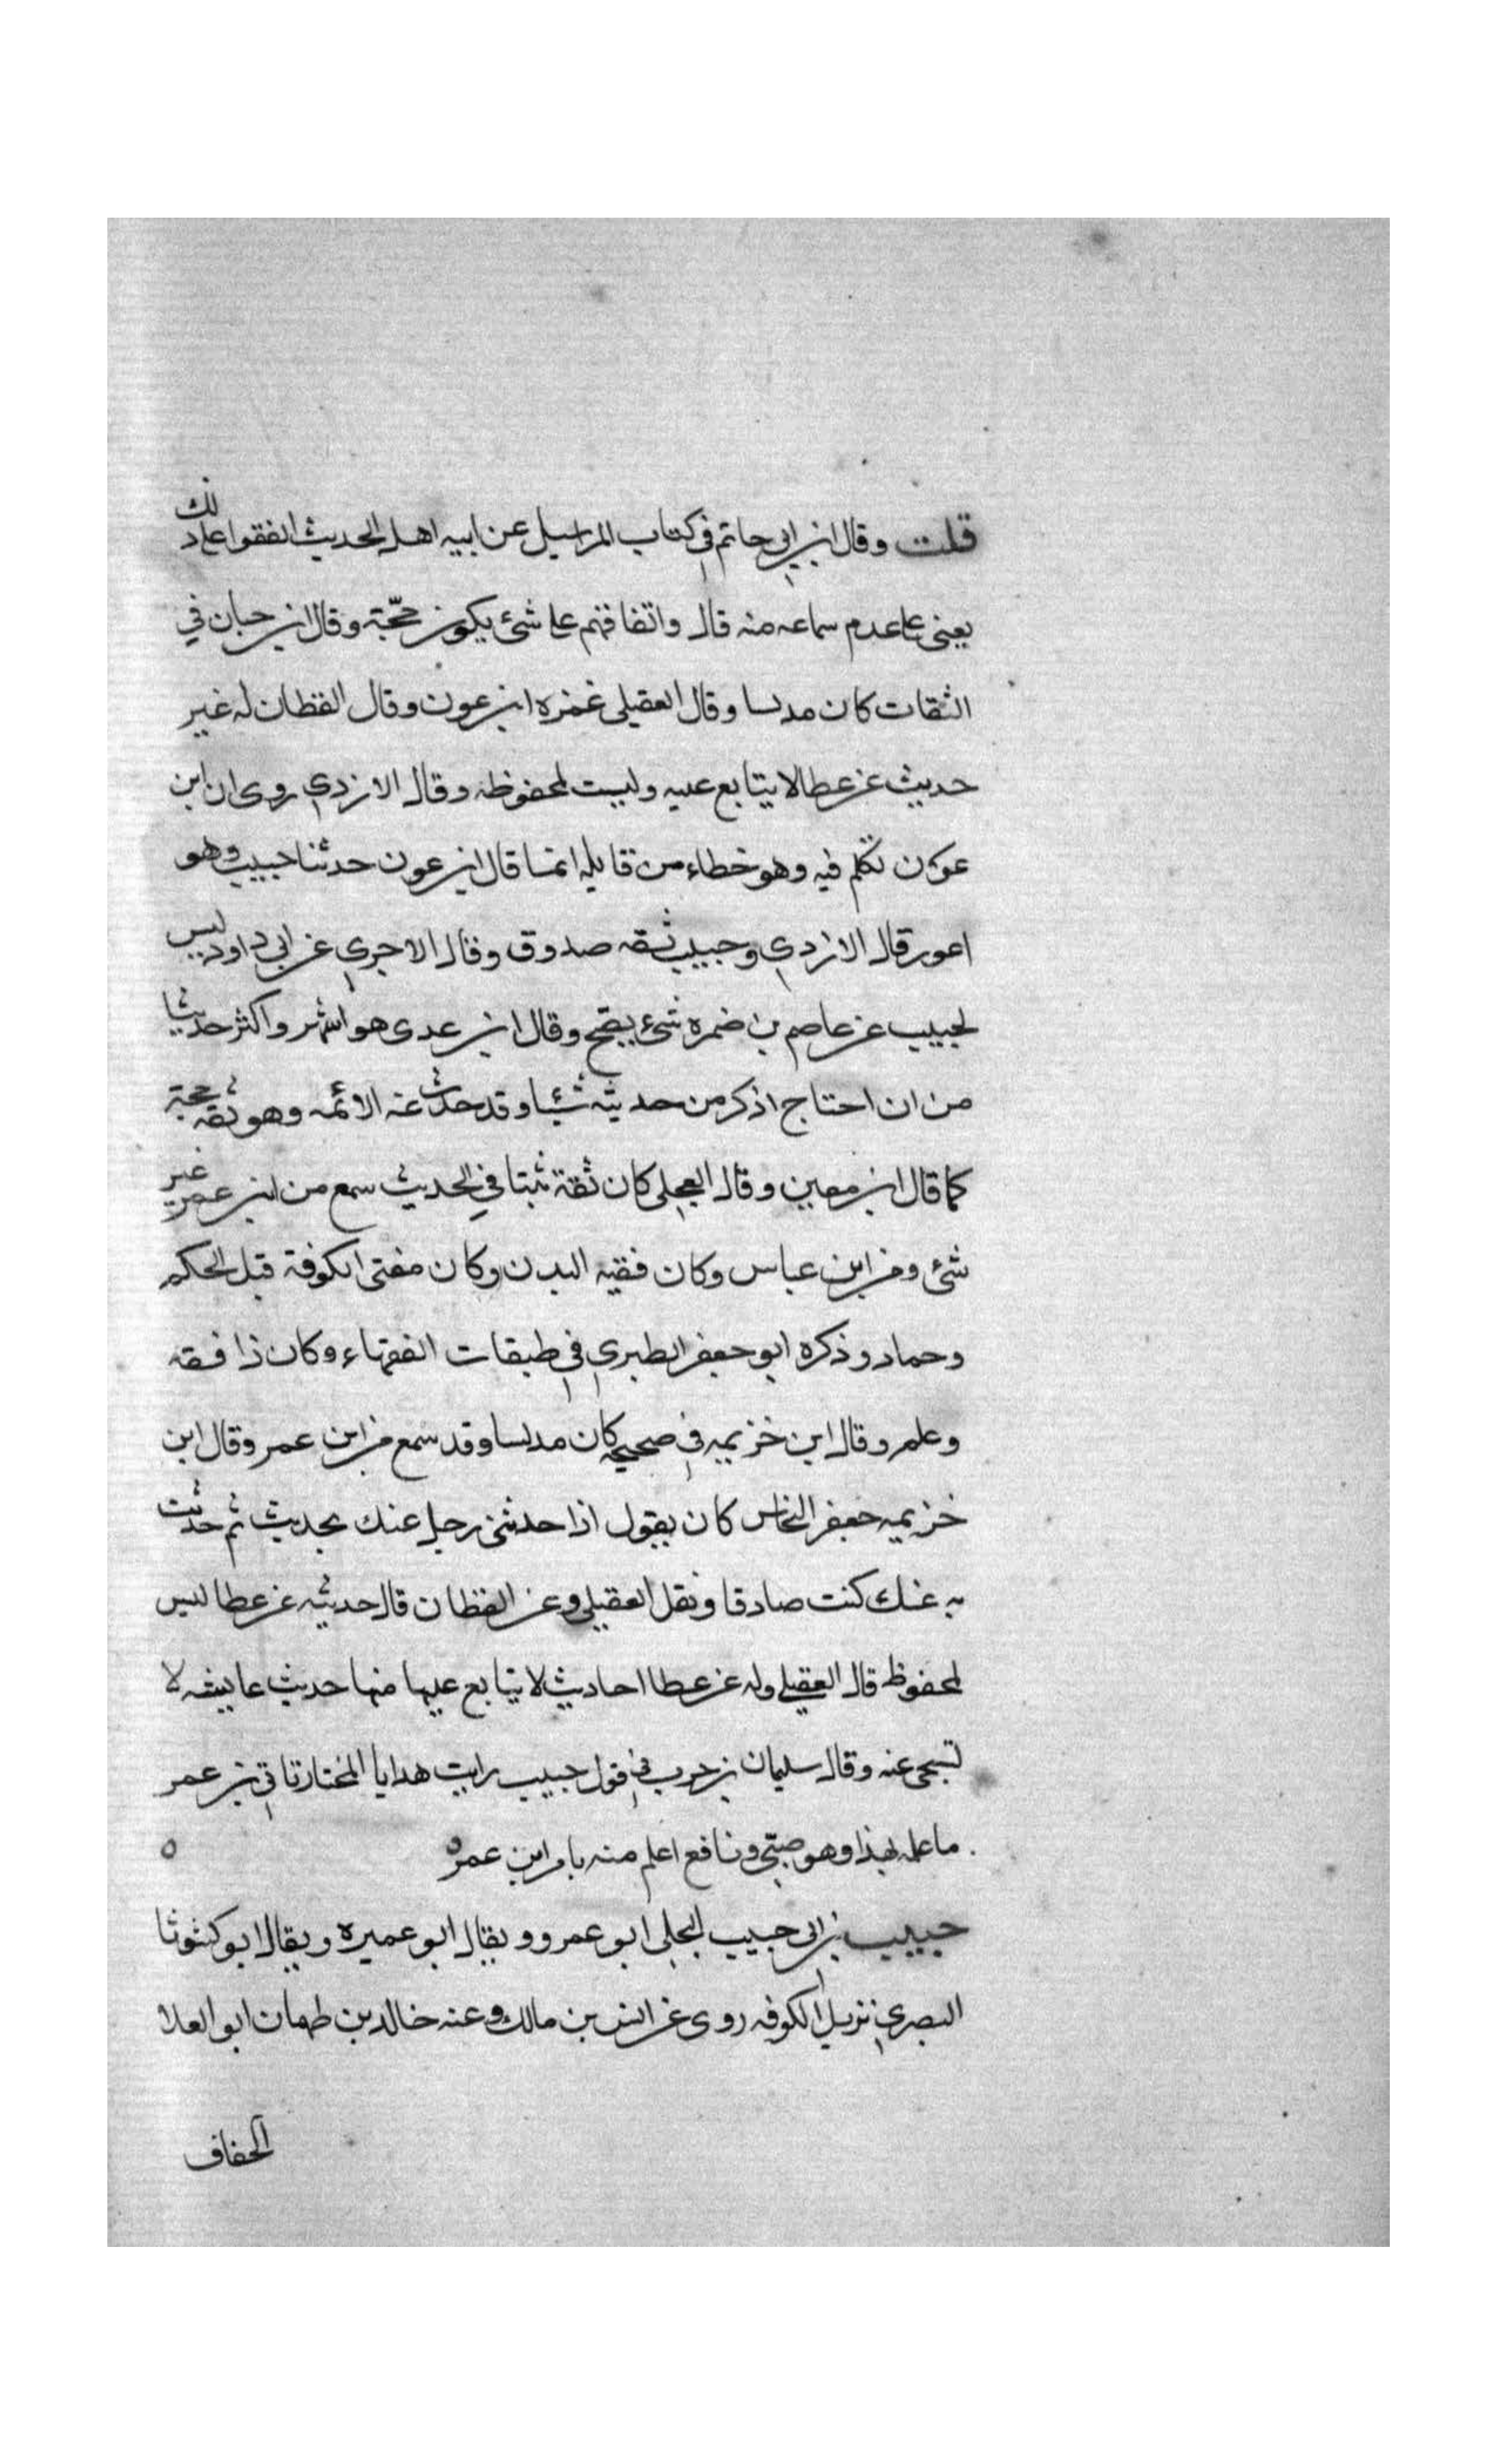 قلت وقال ابن ابي حاتم في كتاب المراسيل عن ابيه اهل الحديث اتفقوا على ذلك
يعني على عدم سماعه منه قال واتفاقهم على شئ يكون حجّة وقال ابن حبان في
الثقات كان مدلسا وقال العقيلي غمزه ابن عون وقال القطان له غير
حديث عن عطا لا يتابع عليه وليست بمحفوظه وقال الازدي روى ان ابن
عون تكلم فيه وهو خطاء من قايله انما قال ابن عون حدثنا حبيب وهو
اعور قال الازدي وحبيب ثقه صدوق وقال الاجري عن ابي داود ليس
لحبيب عن عاصم بن ضمره شئ يصح وقال ابن عدى هو اشهر واكثر حديثا
من ان احتاج اذكر من حديثه شيئا وقد حدث عنه الائمه وهو ثقه حجة
كما قال ابن معين وقال العجلي كان ثقة ثبتا في الحديث سمع من ابن عمر غير
شئ ومن ابن عباس وكان فقيه البدن وكان مفتى الكوفة قبل الحكم
وحماد وذكره ابو جعفر الطبري في طبقات الفقهاء وكان ذا فقه
وعلم وقال ابن خزيمه في صحيحه كان مدلسا وقد سمع من ابن عمر وقال ابن
خزيمه جعفر النحاس كان يقول اذا حدثني رجل عنك بحديث ثم حدثت
به عنك كنت صادقا ونقل العقيلي وعن القطان قال حديثه عن عطا ليس
بمحفوظ قال العقيلي وله عن عطا احاديث لا يتابع عليها منها حديث عايشه لا
تسبحى عنه وقال سليمان بن حرب في قول حبيب رايت هدايا المختار تاتي بن عمر
ما علمه بهذا وهو صبّي ونافع اعلم منه بامر ابن عمر ه ه
حبيب بن ابي حبيب البجلي ابو عمرو ويقال ابو عميره ويقال ابو كشوثا
البصري نزيل الكوفه روى عن انس بن مالك وعنه خالد بن طهمان ابو العلا
الخفاف